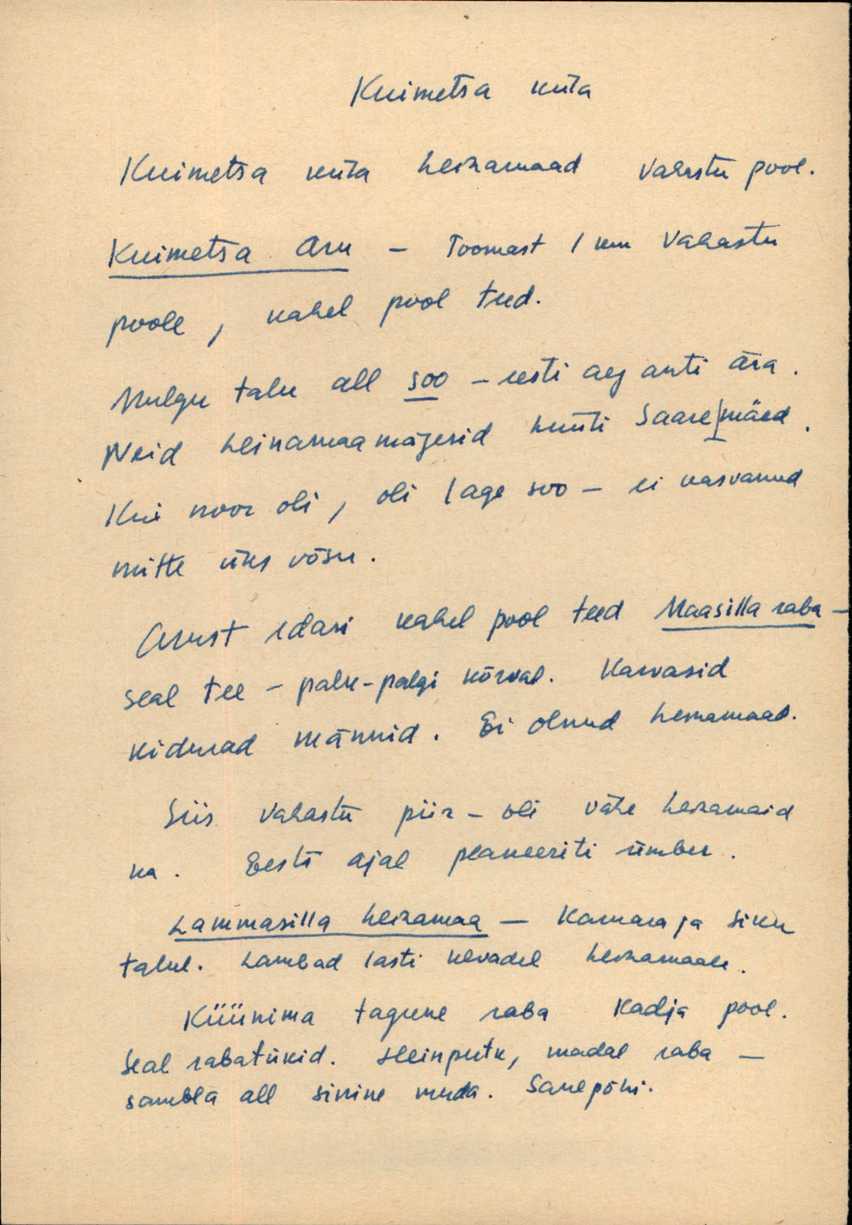 Kuimetsa küla
Kuimetsa küla heinamaad Vahastu pool.
Kuimetsa Aru – Toomast 1 km Vahastu
poole, kahel pool teed.
Mulgu talu all soo – eesti aeg anti ära.
Neid heinamaamägesid hüüti Saare|mäed.
Kui noor oli, oli lage soo – ei kasvanud
mitte üks võsu.
Arust edasi kahel pool teed Maasilla raba –
seal tee – palk-palgi kõrval. Kasvasid
kidurad männid. Ei olnud heinamaad.
Siis Vahastu piir – oli vähe heinamaid
ka. Eesti ajal planeeriti ümber.
Lammasilla heinamaa – Kamara ja Siku
talul. Lambad lasti kevadel heinamaale.
Küünima tagune raba Kadja pool.
Seal rabatükid. Heinputk, madal raba –
sambla all sinine muda. Savepõhi.